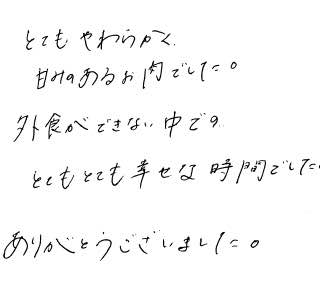 とても やわらかく、
甘みのあるお肉でした。
外食ができない中での
とてもとても幸せな時間でした。
ありがとうございました。